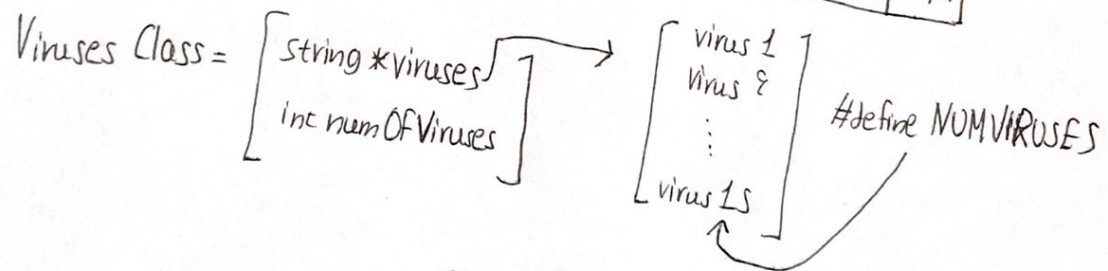 Viruses Class =
string *viruses
int numOfViruses
virus 1
virus 2
virus 15
#define NUMVIRUSES